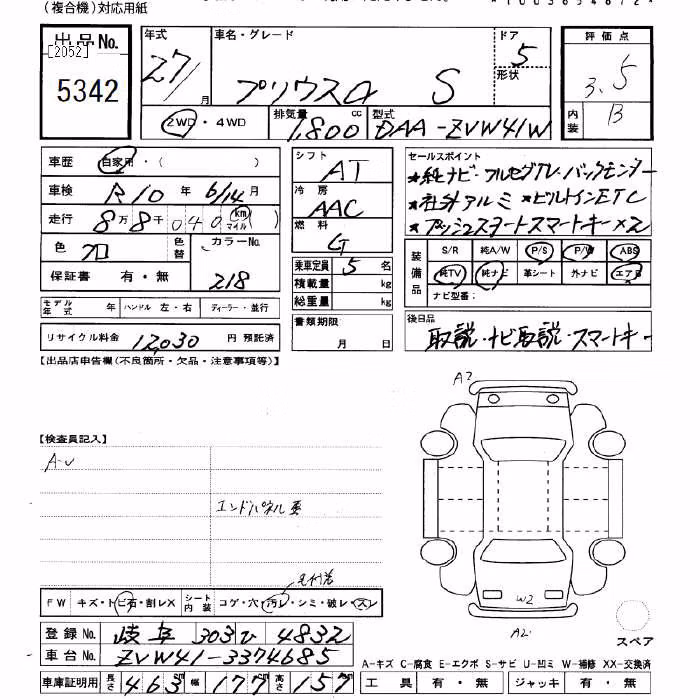 (複合機)対応用紙
出品No.
[2052]
5342
年式
27/
月
車名・グレード
プリウスα S
ドア
5
形状
評価点
3.5
内装
B
2WD・4WD
排気量
1,800
cc
型式
DAA-ZVW41W
車歴
自家用・( )
車検
R10年6/14月
走行
8万8千040
km
マイル
色
クロ
色替
カラーNo.
218
保証書 有・無
モデル年式 年
ハンドル 左・右
ディーラー・並行
リサイクル料金 12,030 円 預託済
シフト
AT
冷房
AAC
燃料
G
乗車定員 5 名
積載量 kg
総重量 kg
書類期限
月 日
セールスポイント
★純ナビ・フルセグTV・バックモニター
★社外アルミ ★ビルトインETC
★プッシュスタートスマートキー×2
装備品
S/R 純A/W P/S P/W ABS
純TV 純ナビ 革シート 外ナビ エアB
ナビ型番:
後日品
取説・ナビ取説・スマートキー
【出品店申告欄(不良箇所・欠品・注意事項等)】
【検査員記入】
A-U
エンドパネル
A2
W2
A2
スペア
FW キズ・トビ石・割レX
シート内装 コゲ・穴・汚レ・シミ・破レ・スレ
登録No. 岐阜 303 ひ 4832
車台No. ZVW41-3374685
車庫証明用 長さ 463 cm 幅 177 cm 高さ 157 cm
A-キズ C-腐食 E-エクボ S-サビ U-凹ミ W-補修 XX-交換済
工具 有・無 ジャッキ 有・無